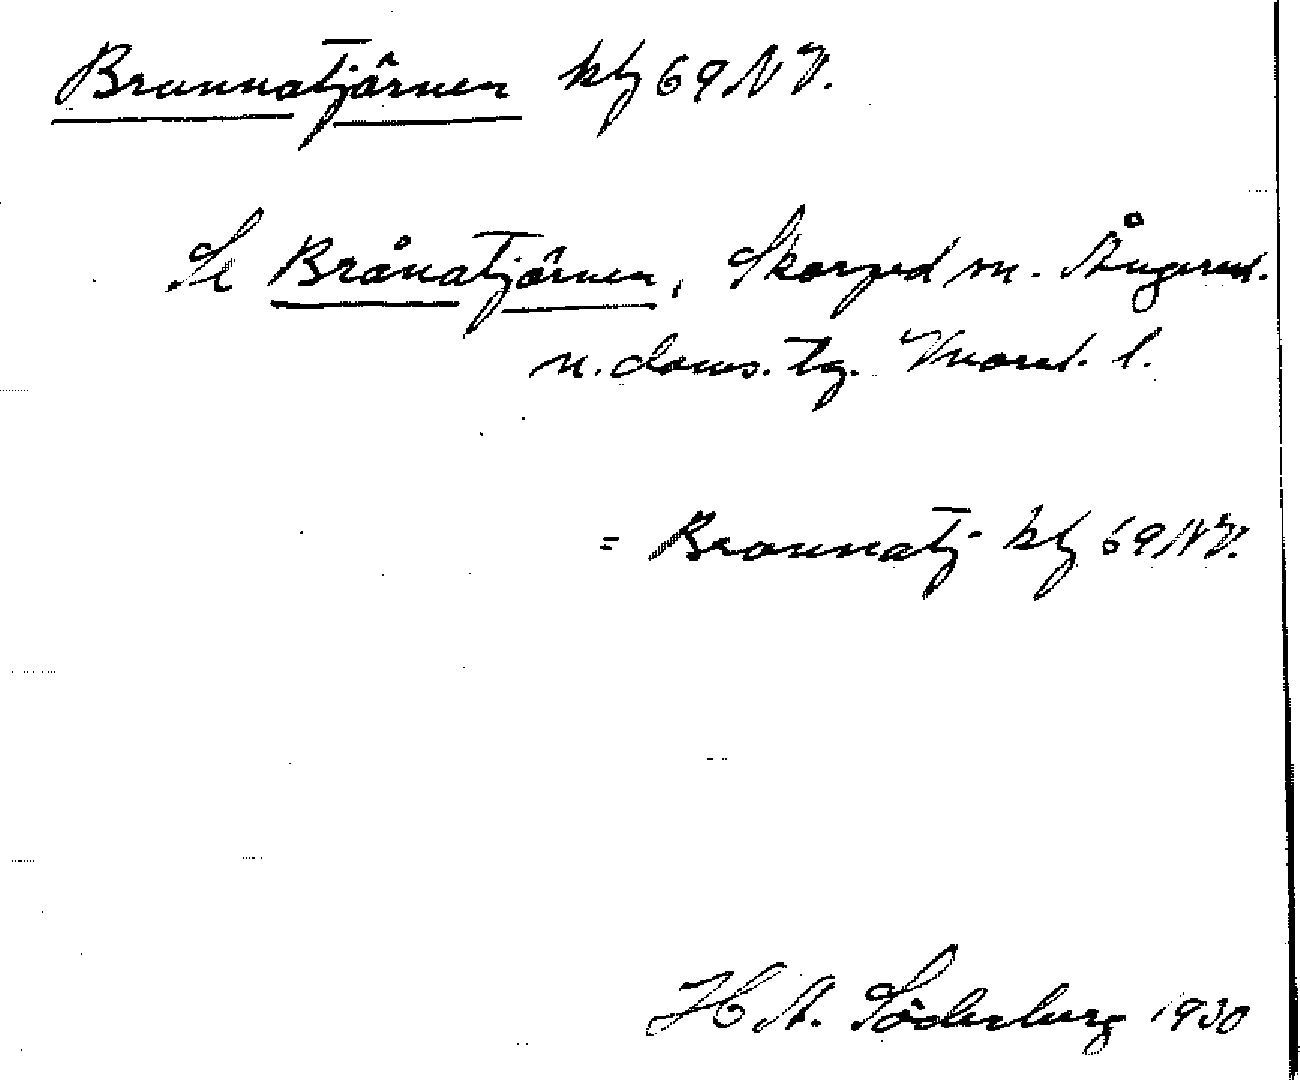 Brunnatjärnen kbl 69 NV.
Se Brånatjärnen, Skorped sn. Ångerml.
n. doms. tg. Vnorrl. l.
= Brounnatj- kbl 69 NV.
H A. Söderberg 1930